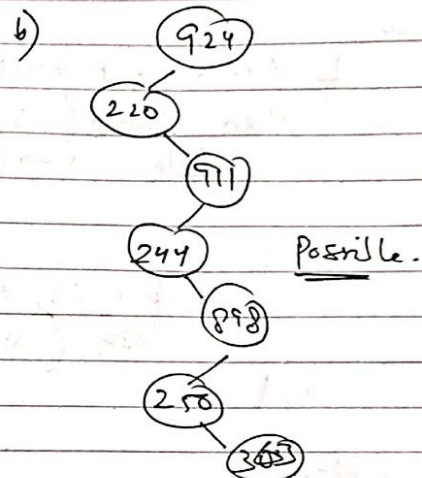 b)
924
220
911
244
Possible.
898
250
363